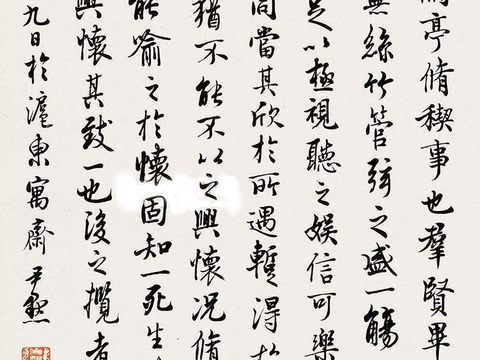 亭脩禊事也羣賢畢
無絲竹管弦之盛一觴
足以極視聽之娛信可樂
同當其欣於所遇暫得於
猶不能不以之興懷況脩
能喻之於懷固知一死生
興懷其致一也後之攬者
九日於滬東寓齋尹默